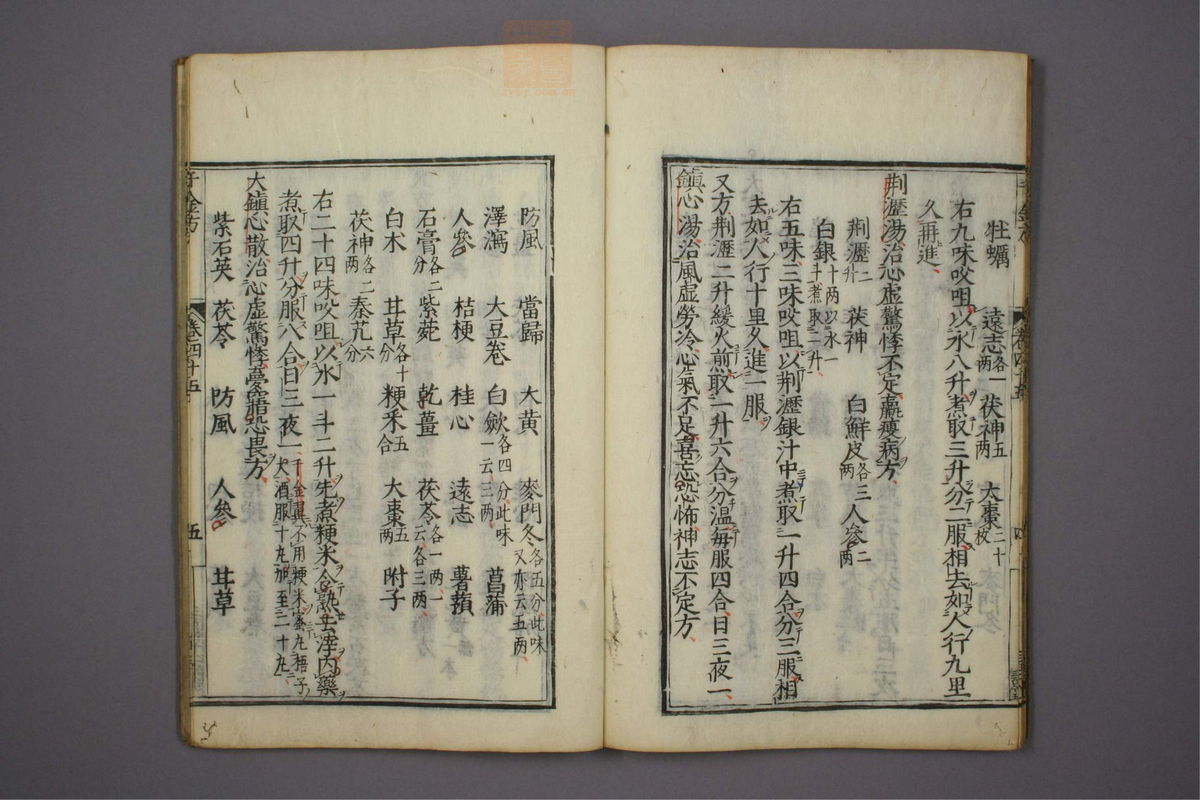 牡蠣 遠志各一兩 茯神五兩 大棗二十枚
右九味㕮咀以水八升煮取三升分二服相去如人行九里
久再進
荆瀝湯治心虛驚悸不定羸瘦病方
荆瀝二升 茯神 白鮮皮各三兩 人參二兩
白銀十兩以水一斗煮取二升
右五味三味㕮咀以荆瀝銀汁中煮取一升四合分三服相
去如人行十里久進一服
又方荆瀝二升緩火煎取一升六合分溫每服四合日三夜一
鎮心湯治風虛勞冷心氣不足喜忘恐怖神志不定方
防風 當歸 大黃 麥門冬各五分此味又亦云五兩
澤瀉 大豆卷 白蘞各四分此味一云三兩 菖蒲
人參 桔梗 桂心 遠志 薯蕷
石膏各二分 紫菀 乾薑 茯苓各一兩一云各三兩
白术 甘草各十分 粳米五合 大棗五兩 附子
茯神各二兩 秦艽六分
右二十四味㕮咀以水一斗二升先煮粳米令熟去滓內藥
煮取四升分服八合日三夜一千金翼不用粳米蜜丸梧子大酒服十丸加至二十丸
大鎮心散治心虛驚悸夢寤恐畏方
紫石英 茯苓 防風 人參 甘草
千金方 卷四十五 五